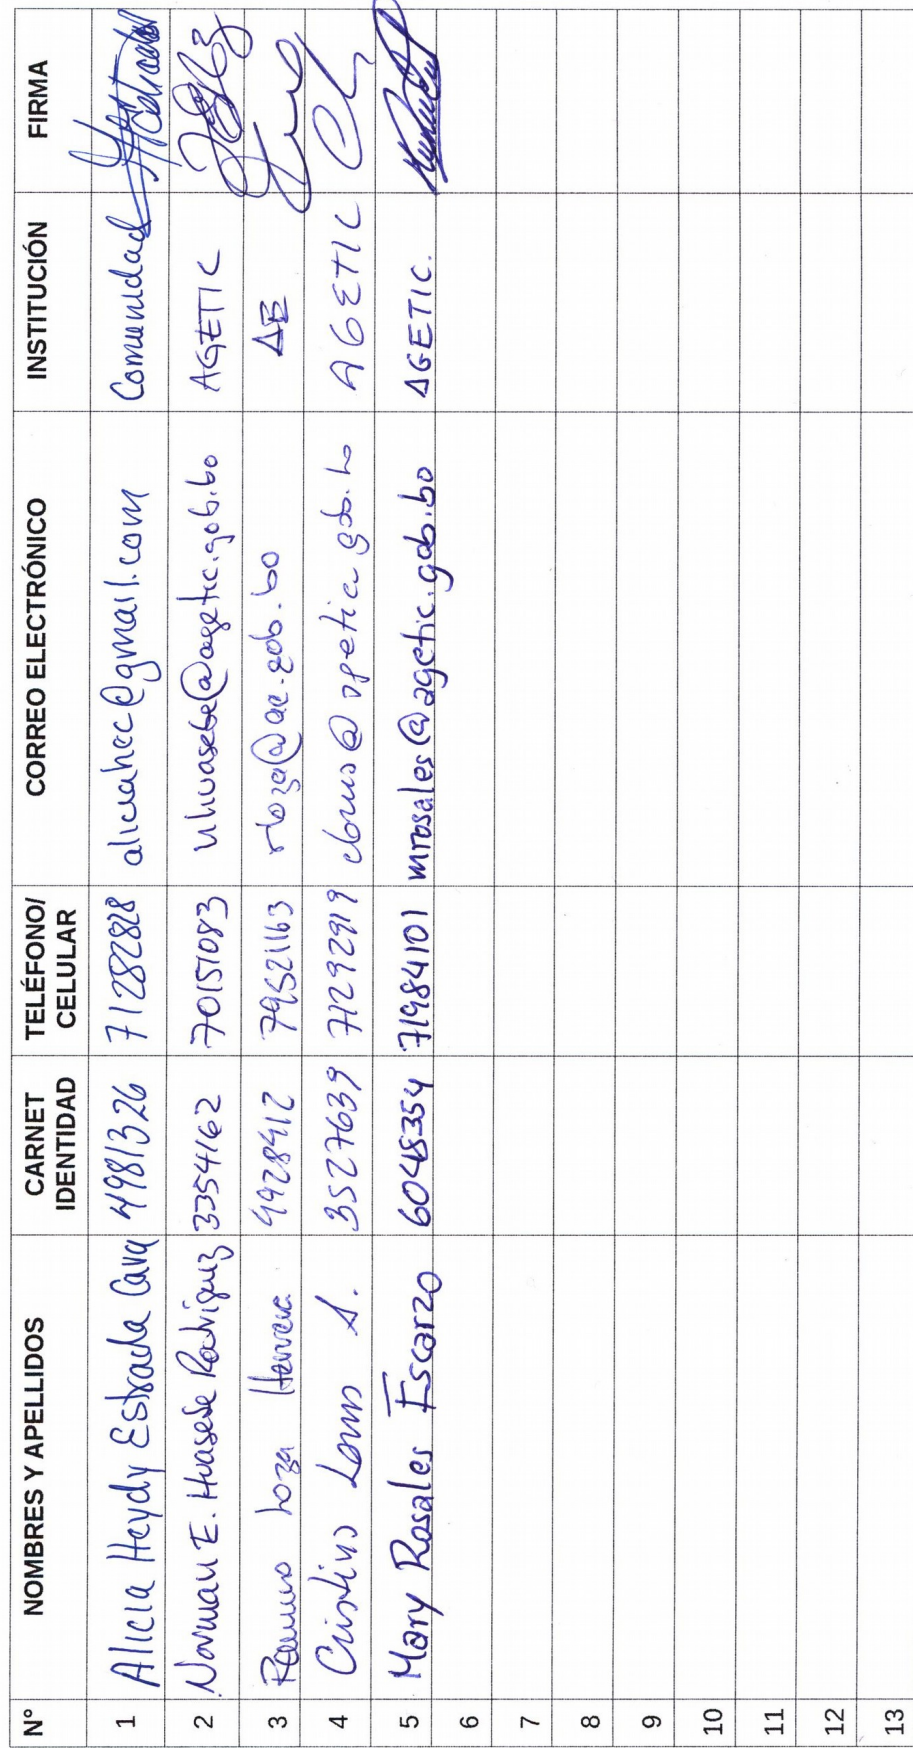 N° NOMBRES Y APELLIDOS CARNET IDENTIDAD TELÉFONO/ CELULAR CORREO ELECTRÓNICO INSTITUCIÓN FIRMA
1 Alicia Heydy Estrada Cava 4981326 71282828 aliciahec@gmail.com Comunidad
2 Norman E. Huasebe Rodriguez 3354162 70151083 nhuasebe@agetic.gob.bo AGETIC
3 Loza Herrera 79521163 rloza@ae.gob.bo AE
4 Cristina S. 3527639 71292919 AGETIC
5 Mary Rosales Escarzo 6048354 71984101 mrosales@agetic.gob.bo AGETIC.
6
7
8
9
10
11
12
13